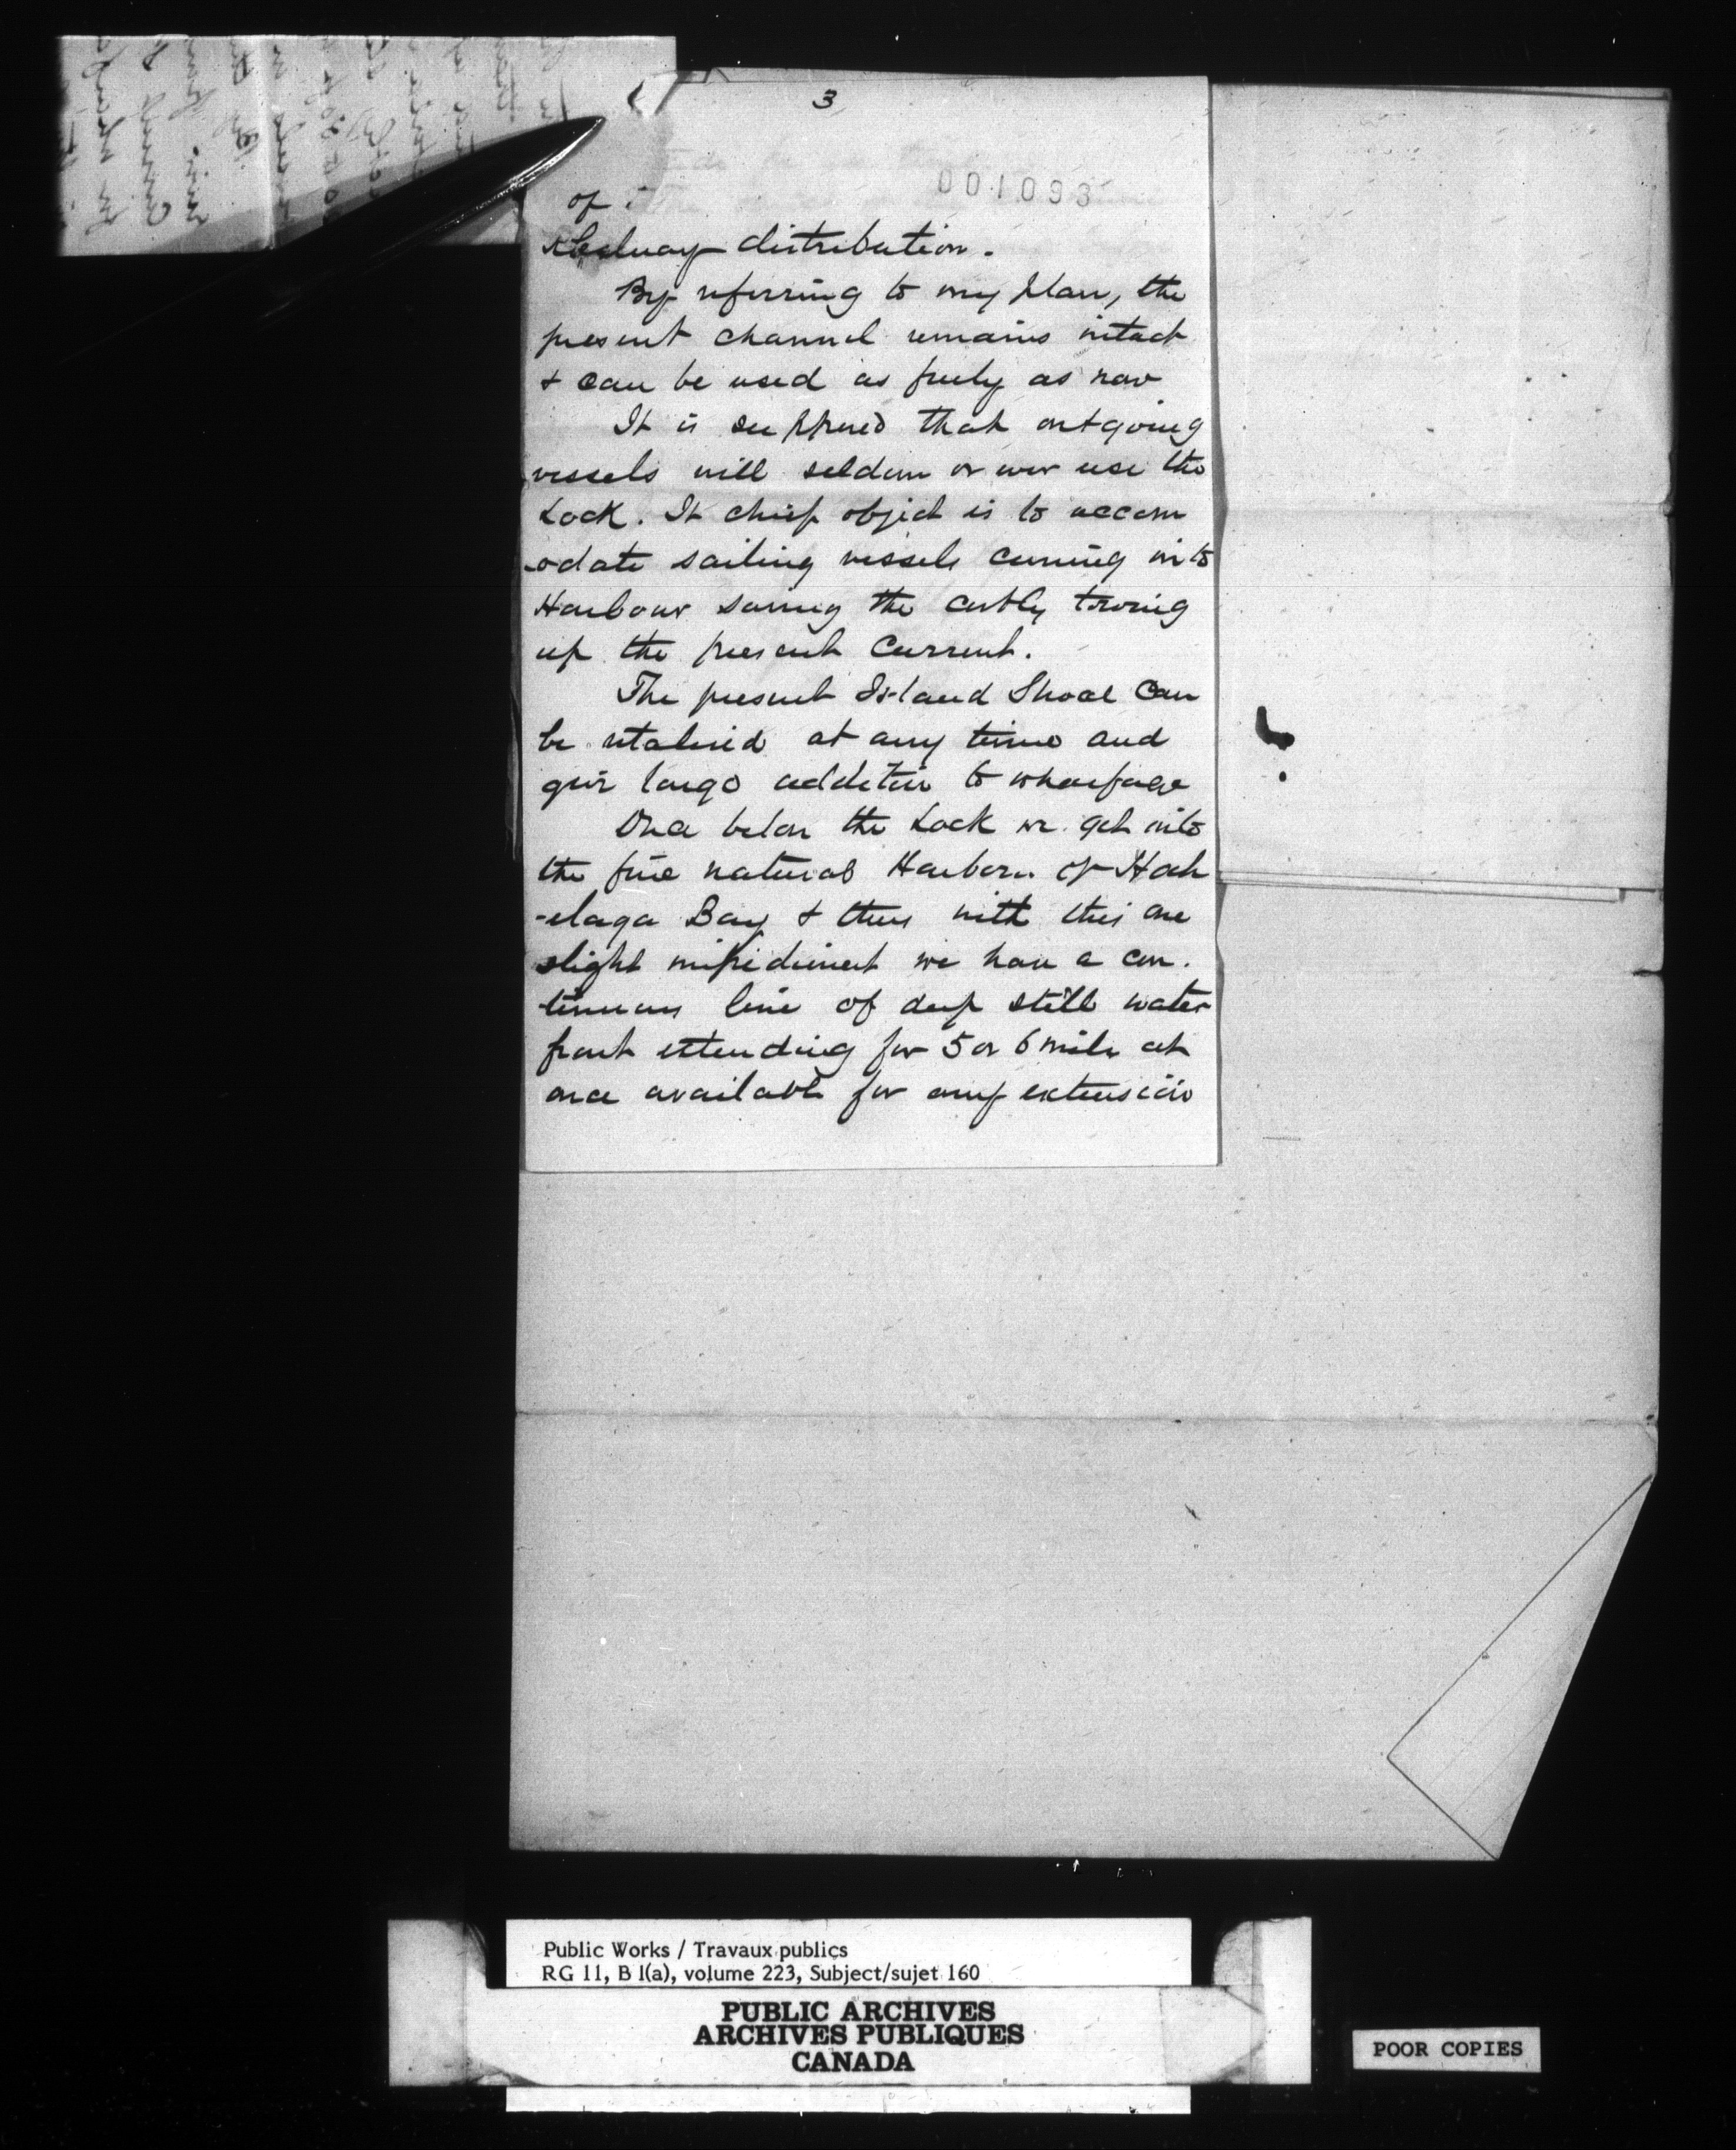 3
001093
of
Railway distribution.
By referring to my plan, the
present channel remains intact
& can be used as freely as now
It is supposed that outgoing
vessels will seldom or ever use the
Lock. It chief object is to accom
-odate sailing vessels coming into
Harbour saving the costly towing
up the present current.
The present Island Shoal can
be utalised at any time and
give large addition to wharfage
Once below the Lock we get into
the fine natural Harbour of Hoch
-elaga Bay & thus with this one
slight impediment we have a con-
-tinuous line of deep still water
front extending for 5 or 6 miles at
once available for any extension
Public Works / Travaux publics
RG 11, B 1(a), volume 223, Subject/sujet 160
PUBLIC ARCHIVES
ARCHIVES PUBLIQUES
CANADA
POOR COPIES